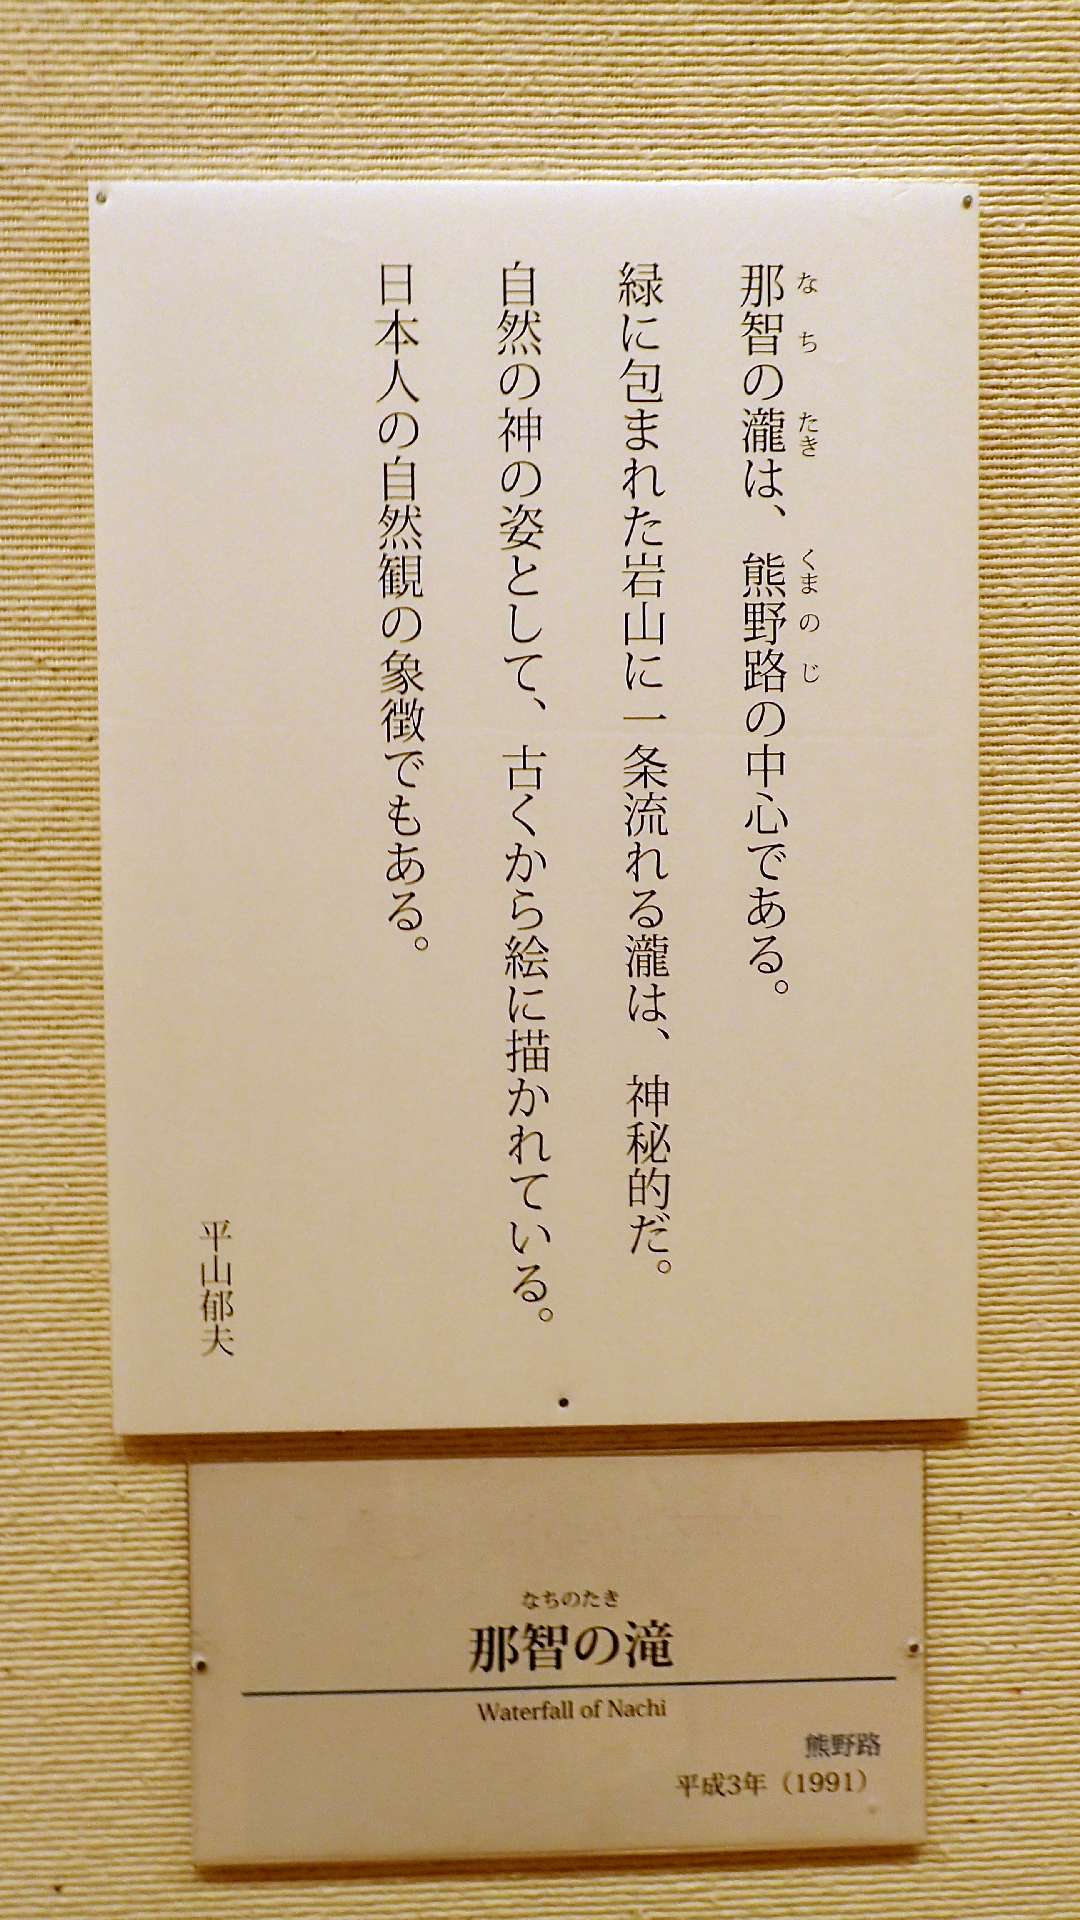 那智の瀧は、熊野路の中心である。
なち たき くまのじ
緑に包まれた岩山に一条流れる瀧は、神秘的だ。
自然の神の姿として、古くから絵に描かれている。
日本人の自然観の象徴でもある。
平山郁夫
なちのたき
那智の滝
Waterfall of Nachi
熊野路
平成3年（1991）